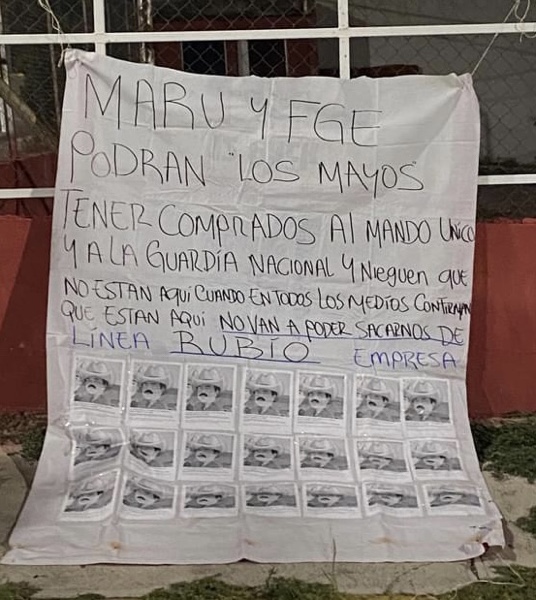 MARU Y FGE
PODRAN "LOS MAYOS"
TENER COMPRADOS Al MANDO UNICO
Y A LA GUARDIA NACIONAL Y NIEGUEN QUE
NO ESTAN AQUI CUANDO EN TODOS LOS MEDIOS CONFIRMAN
QUE ESTAN AQUI NO VAN A PODER SACARNOS DE
LÍNEA RUBIO EMPRESA